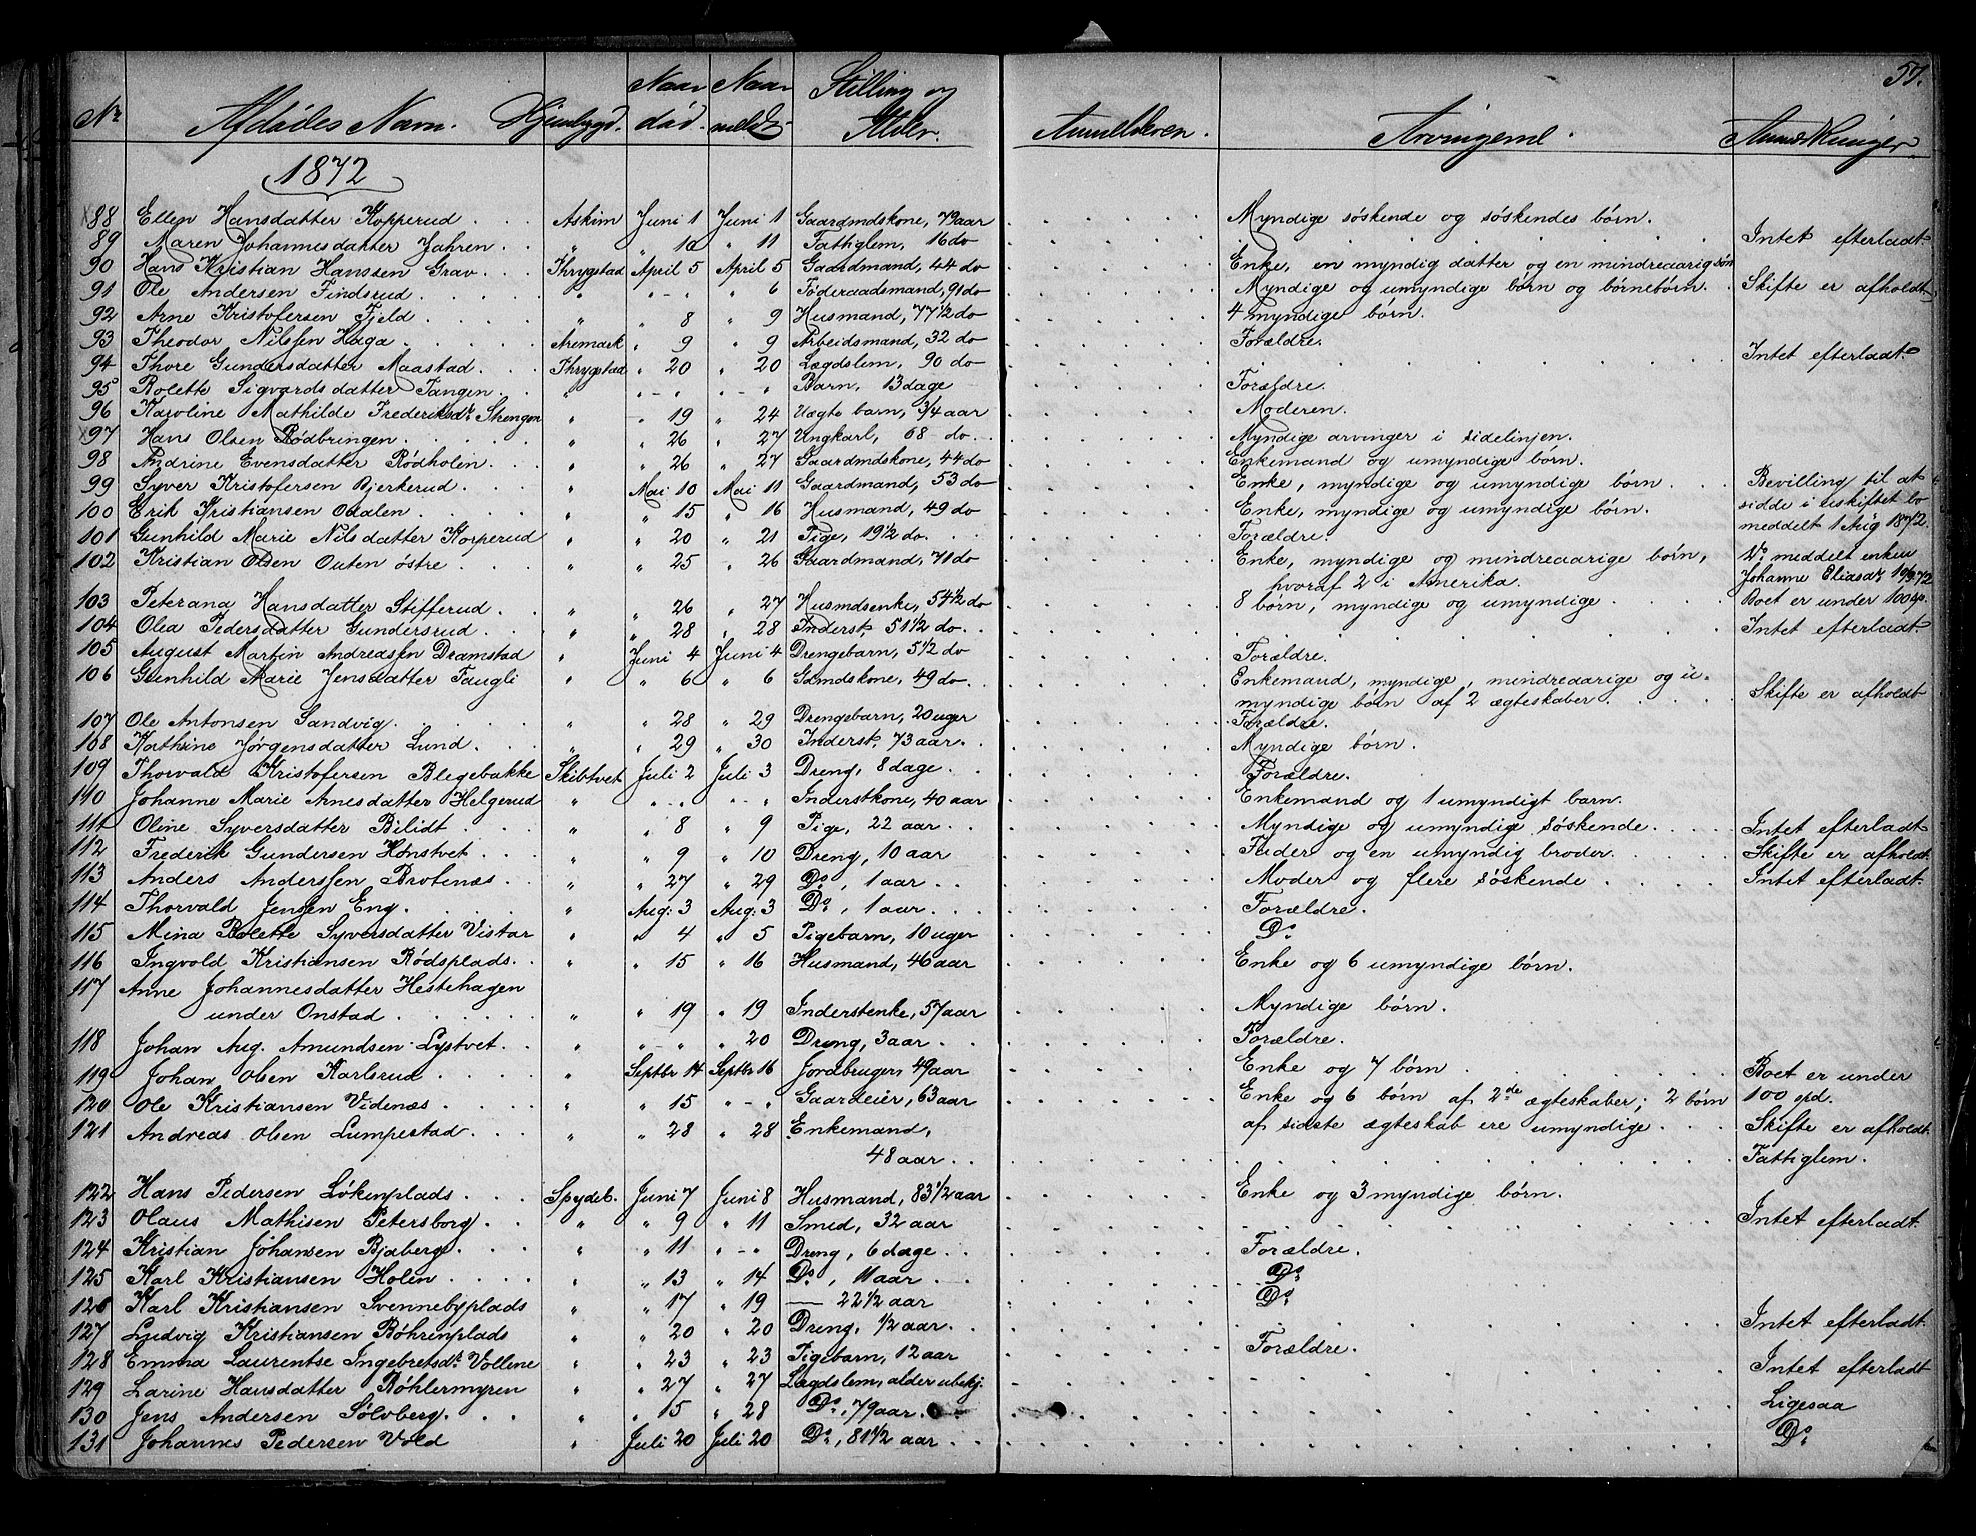 57.
Nr Afdödes Navn. Hjembygd. Naar död. Naar meldt. Stilling og Alder. Anmelderen. Arvingerne. Anmærkninger
1872
88 Ellen Hansdatter Kopperud . . . Askim Juni 1 Juni 1 Gaardmdskone, 79 aar Myndige söskende og söskendes börn.
89 Maren Johannesdatter Jahren . . " " 10 " 11 Fattiglem, 16 do Intet efterladt
90 Hans Kristian Hanssen Grav . . . Thrygstad April 5 April 5 Gaardmand, 44 do Enke, en myndig datter og en mindreaarig sön
91 Ole Andersen Findsrud . . . . " " - " " 6 Föderaadsmand, 91 do Myndige og umyndige börn og börnebörn. Skifte er afholdt
92 Arne Kristofersen Fjeld . . . . " " 8 " 9 Husmand, 77 1/2 do 4 myndige börn.
93 Theodor Nilssen Haga . . . . Aremark " 9 " 9 Arbeidsmand, 32 do Forældre.
94 Thore Gundersdatter Maastad . . . Thrygstad " 20 " 20 Lægdslem, 90 do Intet efterladt
95 Bolette Sigvardsdatter Tangen . . " " - " " - " Barn, 13 dage Forældre.
96 Karoline Mathilde Frederiksdr Skengen " - 19 " 24 Uægte barn, 3/4 aar Moderen.
97 Hans Olsen Rödbringen . . . . " " 26 " 27 Ungkarl, 68 do . . Myndige arvinger i sidelinjen.
98 Andrine Evensdatter Rödholen . . " " 26 " 27 Gaardmdskone, 44 do Enkemand og umyndige börn.
99 Syver Kristofersen Bjerkerud . . . " Mai 10 Mai 11 Gaardmand, 53 do Enke, myndige og umyndige börn . . . Bevilling til at
100 Erik Kristiansen Odalen . . . . " " 15 " 16 Husmand, 49 do Enke, myndige og umyndige börn. sidde i uskiftet bo
101 Gunhild Marie Nilsdatter Korperud " " 20 " 21 Pige, 19 1/2 do . . Forældre. meddelt 1 Aug 1872.
102 Kristian Olsen Outen östre . . . " " 25 " 26 Gaardmand, 71 do Enke, myndige og mindreaarige börn, Do meddelt enken
hvoraf 2 i Amerika. Johanne Eliasdr
103 Peterana Hansdatter Stifferud . . . " " 26 " 27 Husmdsenke, 54 1/2 do 8 börn, myndige og umyndige . . . . Boet er under 100 sp.
104 Olea Pedersdatter Gundersrud . . . " " 28 " 28 Inderst, 51 1/2 do . . Intet efterladt
105 August Martin Andreassen Dramstad " Juni 4 Juni 4 Drengebarn, 5 1/2 do Forældre.
106 Gunhild Marie Jensdatter Faugli " " 6 " 6 Gamdskone, 49 do . . Enkemand, myndige, mindreaarige og u-
myndige börn af 2 ægteskaber . . . Skifte er afholdt
107 Ole Antonsen Sandvig . . . . " " 28 " 29 Drengebarn, 20 uger Forældre.
108 Kathine Jörgensdatter Lund . . . " " 29 " 30 Inderst, 73 aar . . Myndige börn.
109 Thorvald Kristofersen Blegebakke Skibtvet Juli 2 Juli 3 Dreng, 8 dage . . Forældre.
110 Johanne Marie Arnesdatter Helgerud " " - " " - " Inderstkone, 40 aar Enkemand og 1 umyndigt barn.
111 Oline Syversdatter Bilidt . . . " " 8 " 9 Pige, 22 aar . . Myndige og umyndig söskende . . . Intet efterladt
112 Frederik Gundersen Hönstvet . . . " " 9 " 10 Dreng, 10 aar Fader og en umyndig broder . . . Skifte er afholdt
113 Anders Anderssen Brotenæs . . . " " 27 " 29 Do, 1 aar . . Moder og flere söskende . . . . Intet efterladt
114 Thorvald Jensen Eng . . . . " Aug: 3 Aug: 3 Do, 1 aar . . Forældre.
115 Mina Bolette Syversdatter Vistar " " 4 " 5 Pigebarn, 10 uger Do
116 Ingvold Kristiansen Rödsplads . . " " 15 " 16 Husmand, 46 aar Enke og 6 umyndige börn.
117 Anne Johannesdatter Hestehagen
under Onstad . . . . " " 19 " 19 Inderstenke, 57 aar Myndige börn.
118 Johan Aug. Amundsen Lystvet . . " " " " 20 Dreng, 3 aar . . Forældre.
119 Johan Olsen Karlsrud . . . . " Septbr 14 Septbr 16 Jordbruger 49 aar Enke og 7 börn . . . . Boet er under
120 Ole Kristiansen Videnæs . . . " " 15 " - " Gaardeier, 63 aar Enke og 6 börn af 2de ægteskaber; 2 börn 100 spd.
121 Andreas Olsen Lumpestad . . . " " 28 " 28 Enkemand, af sidste ægteskab ere umyndige . . . Skifte er afholdt
48 aar . . Fattiglem.
122 Hans Pedersen Lökenplads . . . Spydeb. Juni 7 Juni 8 Husmand, 83 1/2 aar Enke og 3 myndige börn.
123 Olaus Mathisen Petersborg . . . " " 9 " 11 Smed, 32 aar Intet efterladt
124 Kristian Johansen Bjaberg . . . " " 11 " - " Dreng, 6 dage . . Forældre.
125 Karl Kristiansen Holen . . . . " " 13 " 14 Do, 11 aar . . Do
126 Karl Kristiansen Svennebyplads " " 17 " 19 — 22 1/2 aar Do
127 Ludvig Kristiansen Böhrenplads " " 20 " 20 Dreng, 1/2 aar . . Intet efterladt
128 Emma Laurentse Ingebretsdr Vollene " " 23 " 23 Pigebarn, 12 aar Forældre.
129 Larine Hansdatter Böhlermyren " " 27 " 27 Lægdslem, alder ubekj. Intet efterladt
130 Jens Andersen Sölvberg . . . " " 15 " 28 Do, 79 aar . . Ligesaa
131 Johannes Pedersen Vold " Juli 20 Juli 20 Do, 81 1/2 aar . . Do